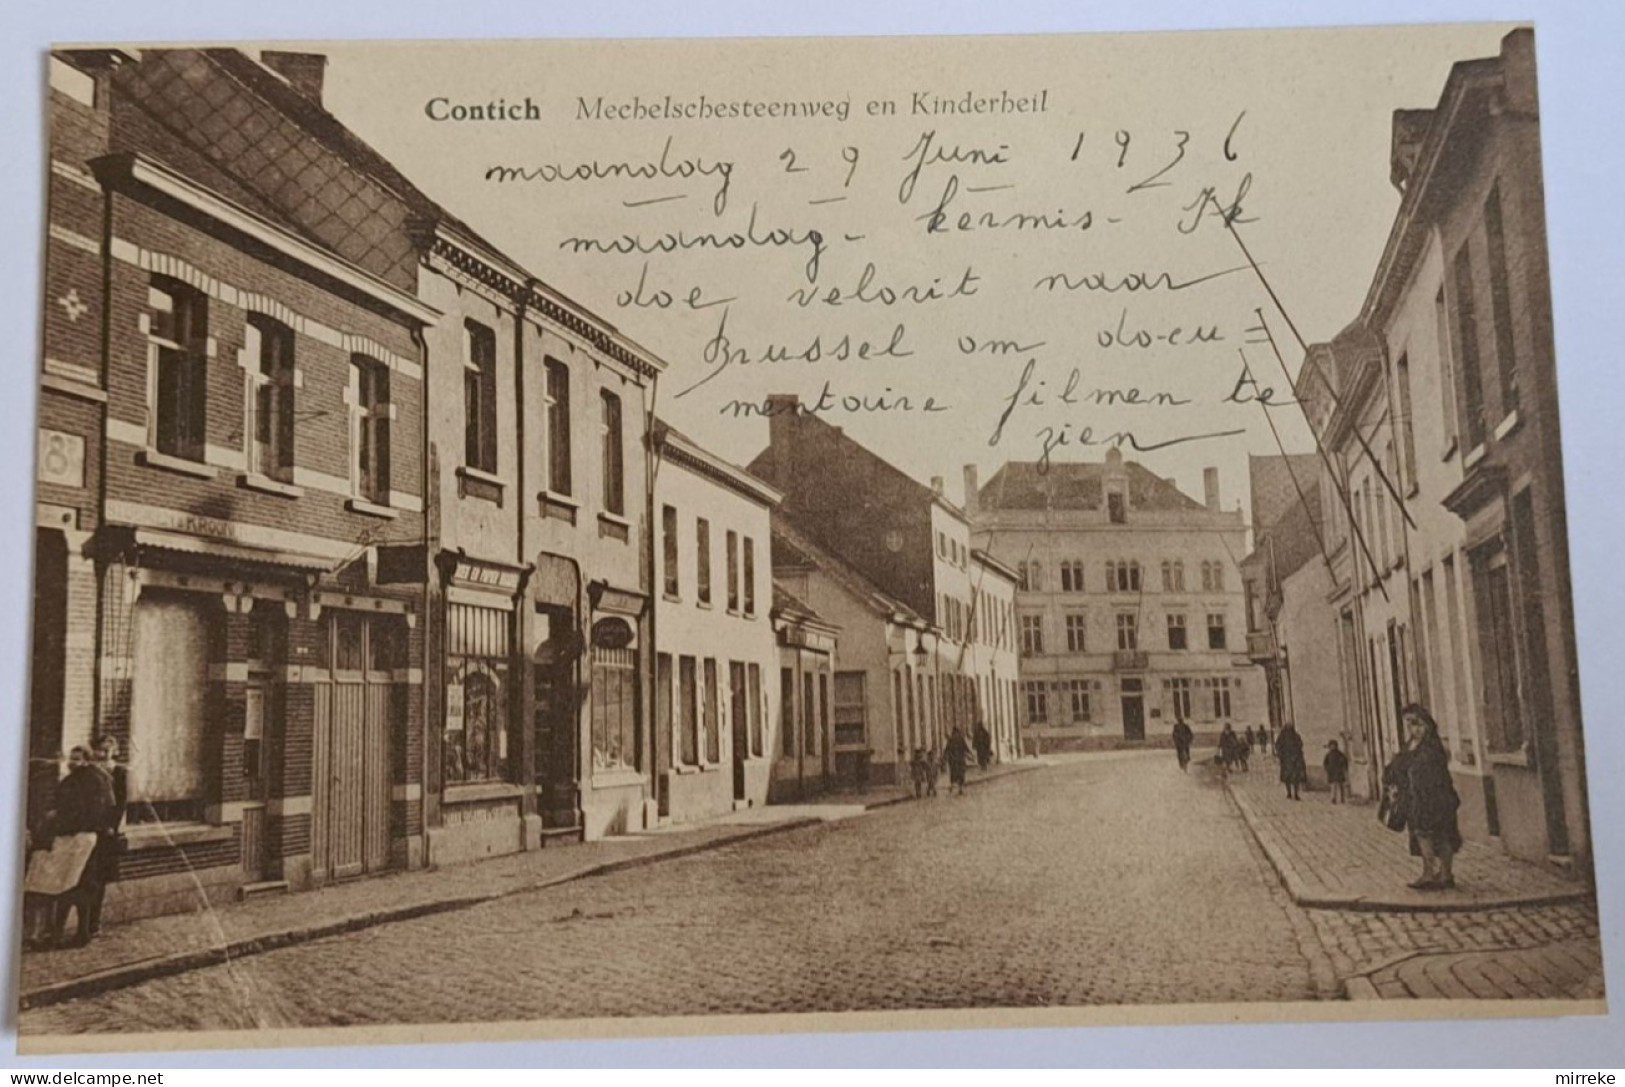 Contich Mechelschesteenweg en Kinderheil
maandag 29 Juni 1936
maandag - kermis - Ik
doe velorit naar
Brussel om do-cu=
mentaire filmen te
zien
8
KROON
mirreke